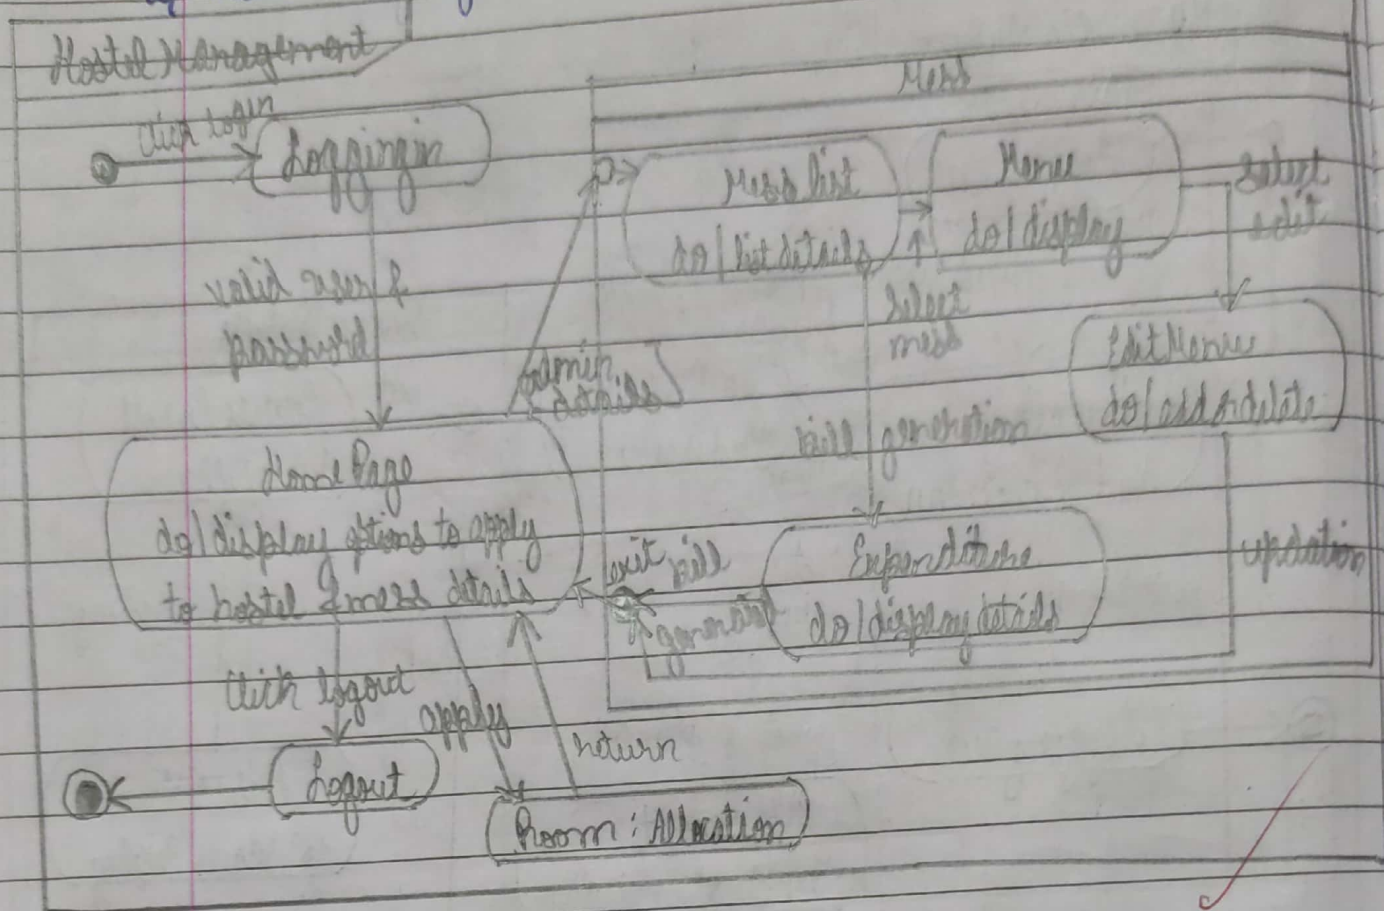 Hostel Management
Mess
Click Login
Loggingin
Mess list
do/list details
Menu
do/display
select
edit
valid user &
password
select
mess
Edit Menu
do/add or delete
admin
details
bill generation
Home Page
do/display options to apply
to hostel & mess details
exit
bill
generated
Expenditure
do/display details
updation
Click logout
apply
return
Logout
Room: Allocation